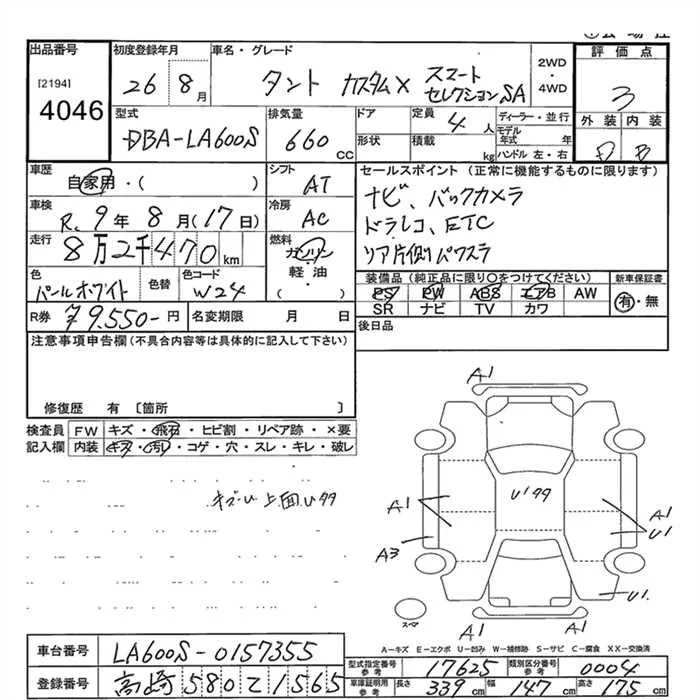 出品番号 初度登録年月 車名・グレード 2WD・4WD 評価点
[2194]
4046
26 8月 タント カスタムX スマートセレクションSA 3
型式 排気量 ドア 定員 ディーラー・並行 外装 内装
DBA-LA600S 660CC 4人 モデル年式 年
形状 積載 kg ハンドル 左・右 D B
車歴 シフト セールスポイント(正常に機能するものに限ります)
自家用・( ) AT ナビ、バックカメラ
車検 冷房 ドラレコ、ETC
R、9年8月(17日) AC リア片側パワスラ
走行 燃料
8万2千470km ガソリン
軽油・( )
色 色替 色コード
パールホワイト W24
装備品(純正品に限り○をつけてください) 新車保証書
PS PW ABS エアB AW 有・無
SR ナビ TV カワ
R券 ¥9.550-円 名変期限 月 日 後日品
注意事項申告欄(不具合内容等は具体的に記入して下さい)
修復歴 有〔箇所 〕
検査員記入欄 FW キズ・飛石・ヒビ割・リペア跡・×要
内装 キズ・汚れ・コゲ・穴・スレ・キレ・破レ
キズU 上面U99
A1
U'99
A1 A1
U1
A3
U1.
スペア
A1 A1
A-キズ E-エクボ U-凹み W-補修跡 S-サビ C-腐食 XX-交換済
車台番号 LA600S-0157355
型式指定番号参考 17625 類別区分番号参考 0004
登録番号 高崎580で1565
車庫証明用参考 長さ339cm 幅147cm 高さ175cm